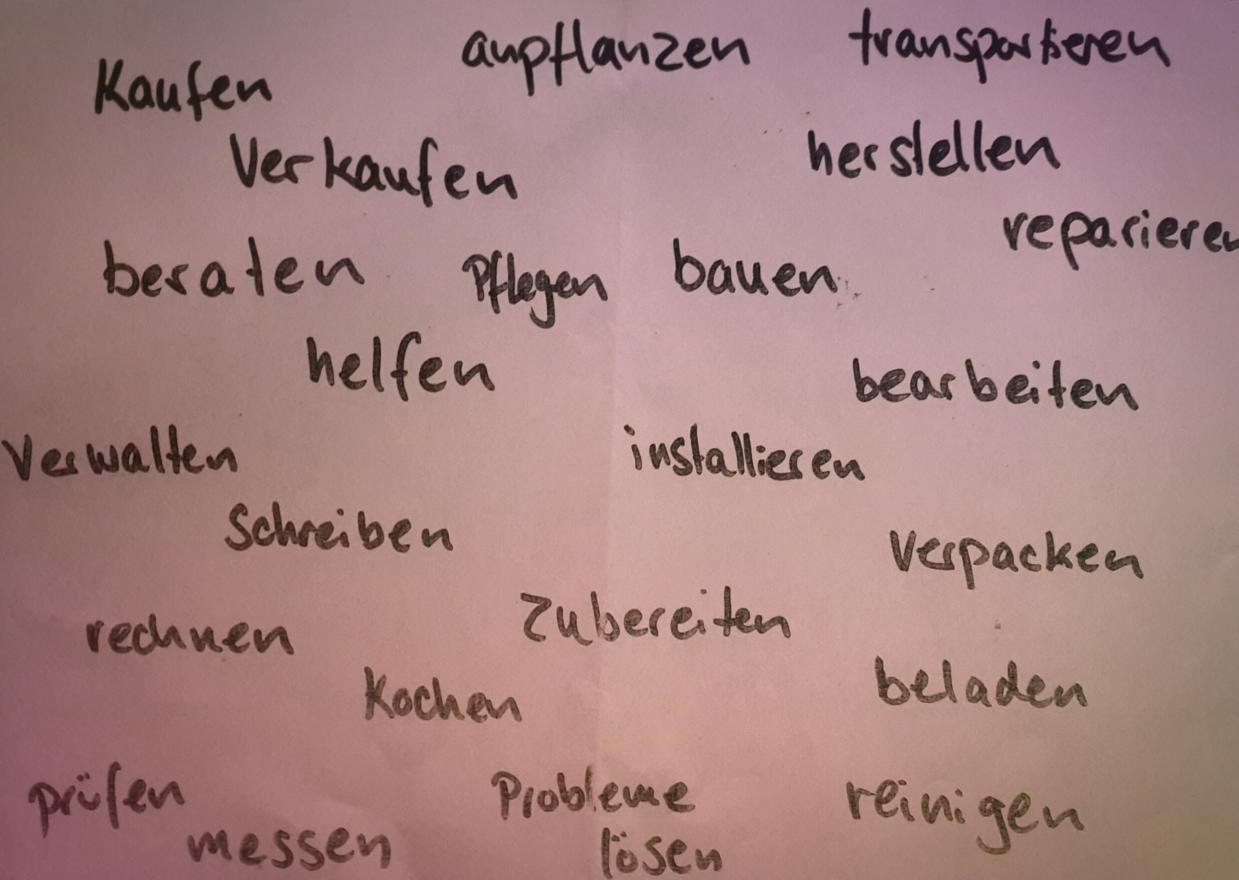 anpflanzen transportieren
Kaufen
Verkaufen herstellen
reparieren
beraten Pflegen bauen
helfen bearbeiten
Verwalten installieren
Schreiben Verpacken
rechnen Zubereiten
Kochen beladen
prüfen Probleme reinigen
messen lösen